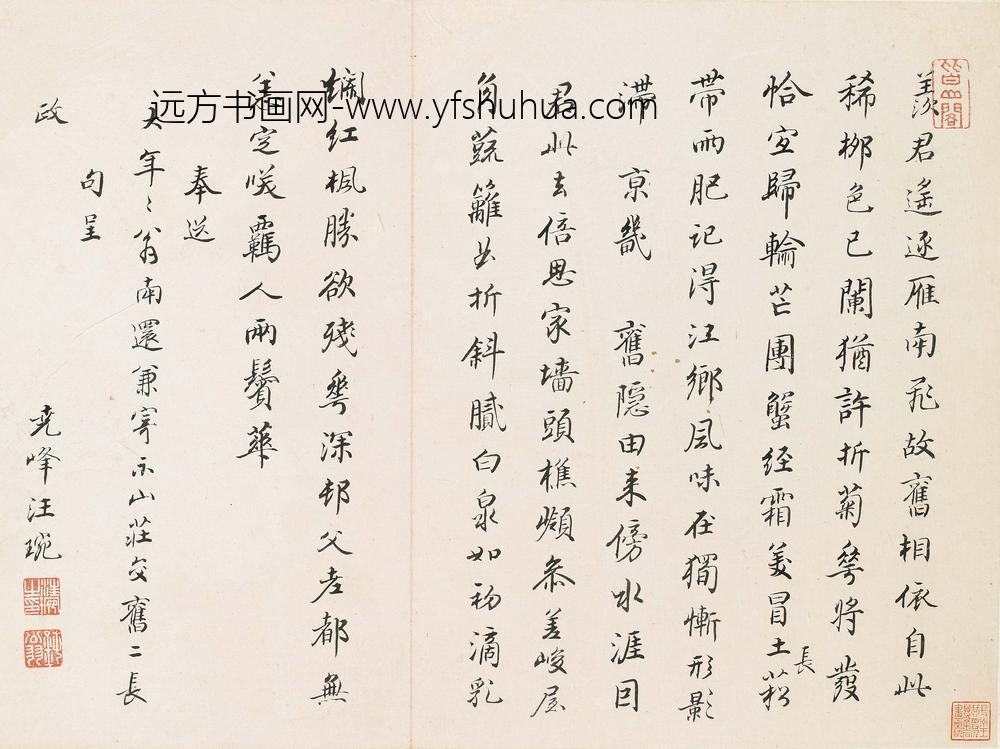 羨君遙逐雁南飛故舊相依自此
稀柳色已闌猶許折菊華將發
恰宜歸輪芒團蟹經霜美冒土菘
長
帶雨肥記得江鄉風味在獨慚形影
滯 京畿 舊隱由來傍水涯因
君此去倍思家墻頭樵參差峻屋
角蔬籬曲折斜膩白泉如初滴乳
斕紅楓勝欲殘華深邨父老都無
恙定咲羈人兩鬢華
奉送
年〻翁南還兼寄示山莊交舊二長
句呈
政
堯峰汪琬
远方书画网-www.yfshuhua.com